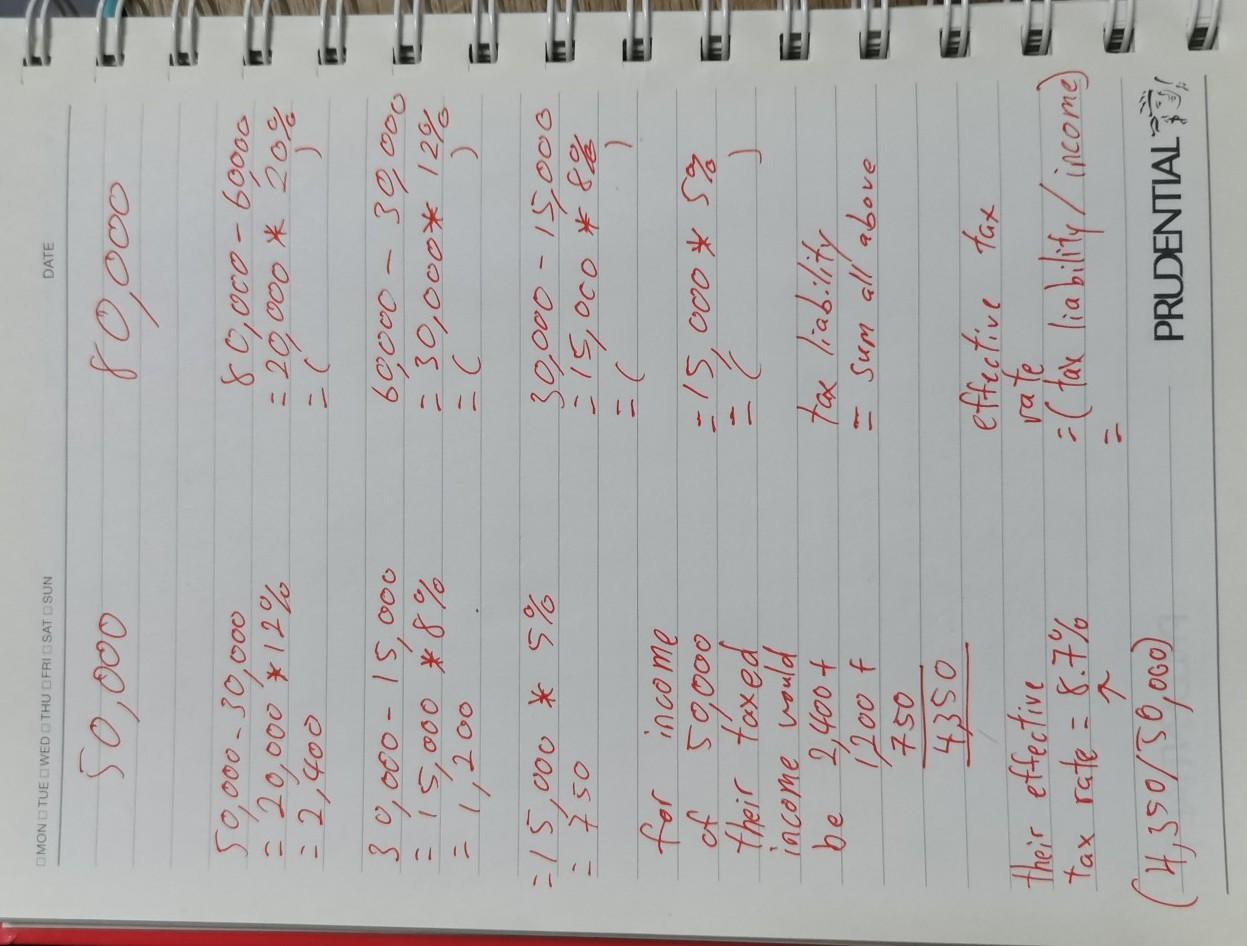 □MON □TUE □WED □THU □FRI □SAT □SUN
DATE
50,000
50,000-30,000
= 20,000 * 12%
= 2,400
30,000 - 15,000
= 15,000 * 8%
= 1,200
= 15,000 * 5%
= 750
for income
of 50,000
their taxed
income would
be 2,400 +
1,200 +
750
4,350
their effective
tax rate = 8.7%
↑
(4,350/50,000)
80,000
80,000 - 60,000
= 20,000 * 20%
= ( )
60,000 - 30,000
= 30,000 * 12%
= ( )
30,000 - 15,000
= 15,000 * 8%
= ( )
= 15,000 * 5%
= ( )
tax liability
= sum all above
effective tax
rate
= (tax liability/income)
=
PRUDENTIAL